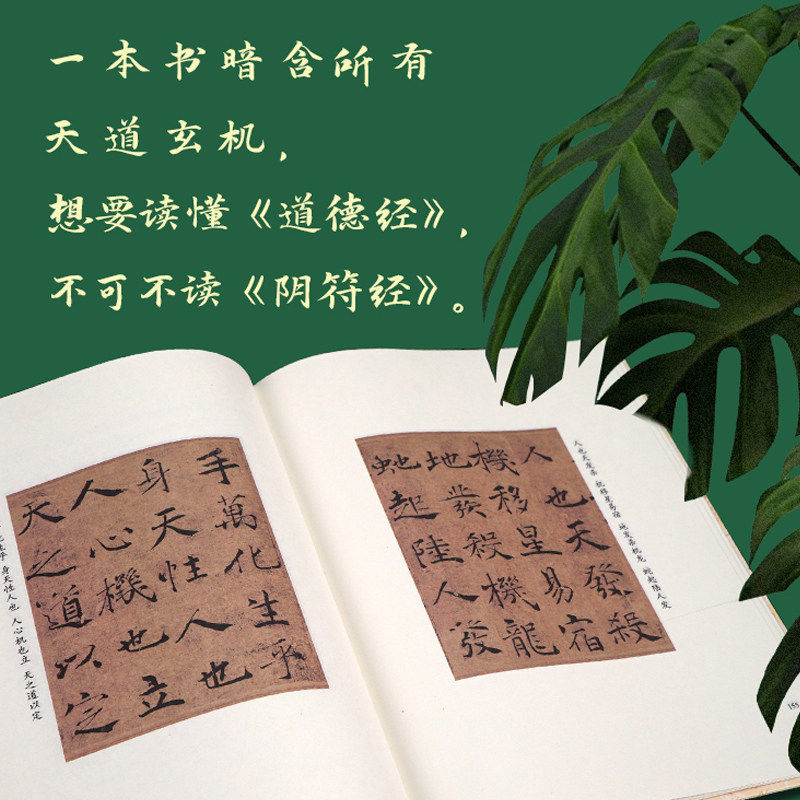 一本书暗含所有
天道玄机，
想要读懂《道德经》，
不可不读《阴符经》。
手萬化生乎
身天性人也
人心機也立
天之道以定
化生乎 身天性人也 人心机也立 天之道以定
人也天發殺
機移星易宿
地發殺機龍
虵起陸人發
人也天发杀 机移星易宿 地发杀机龙 蛇起陆人发